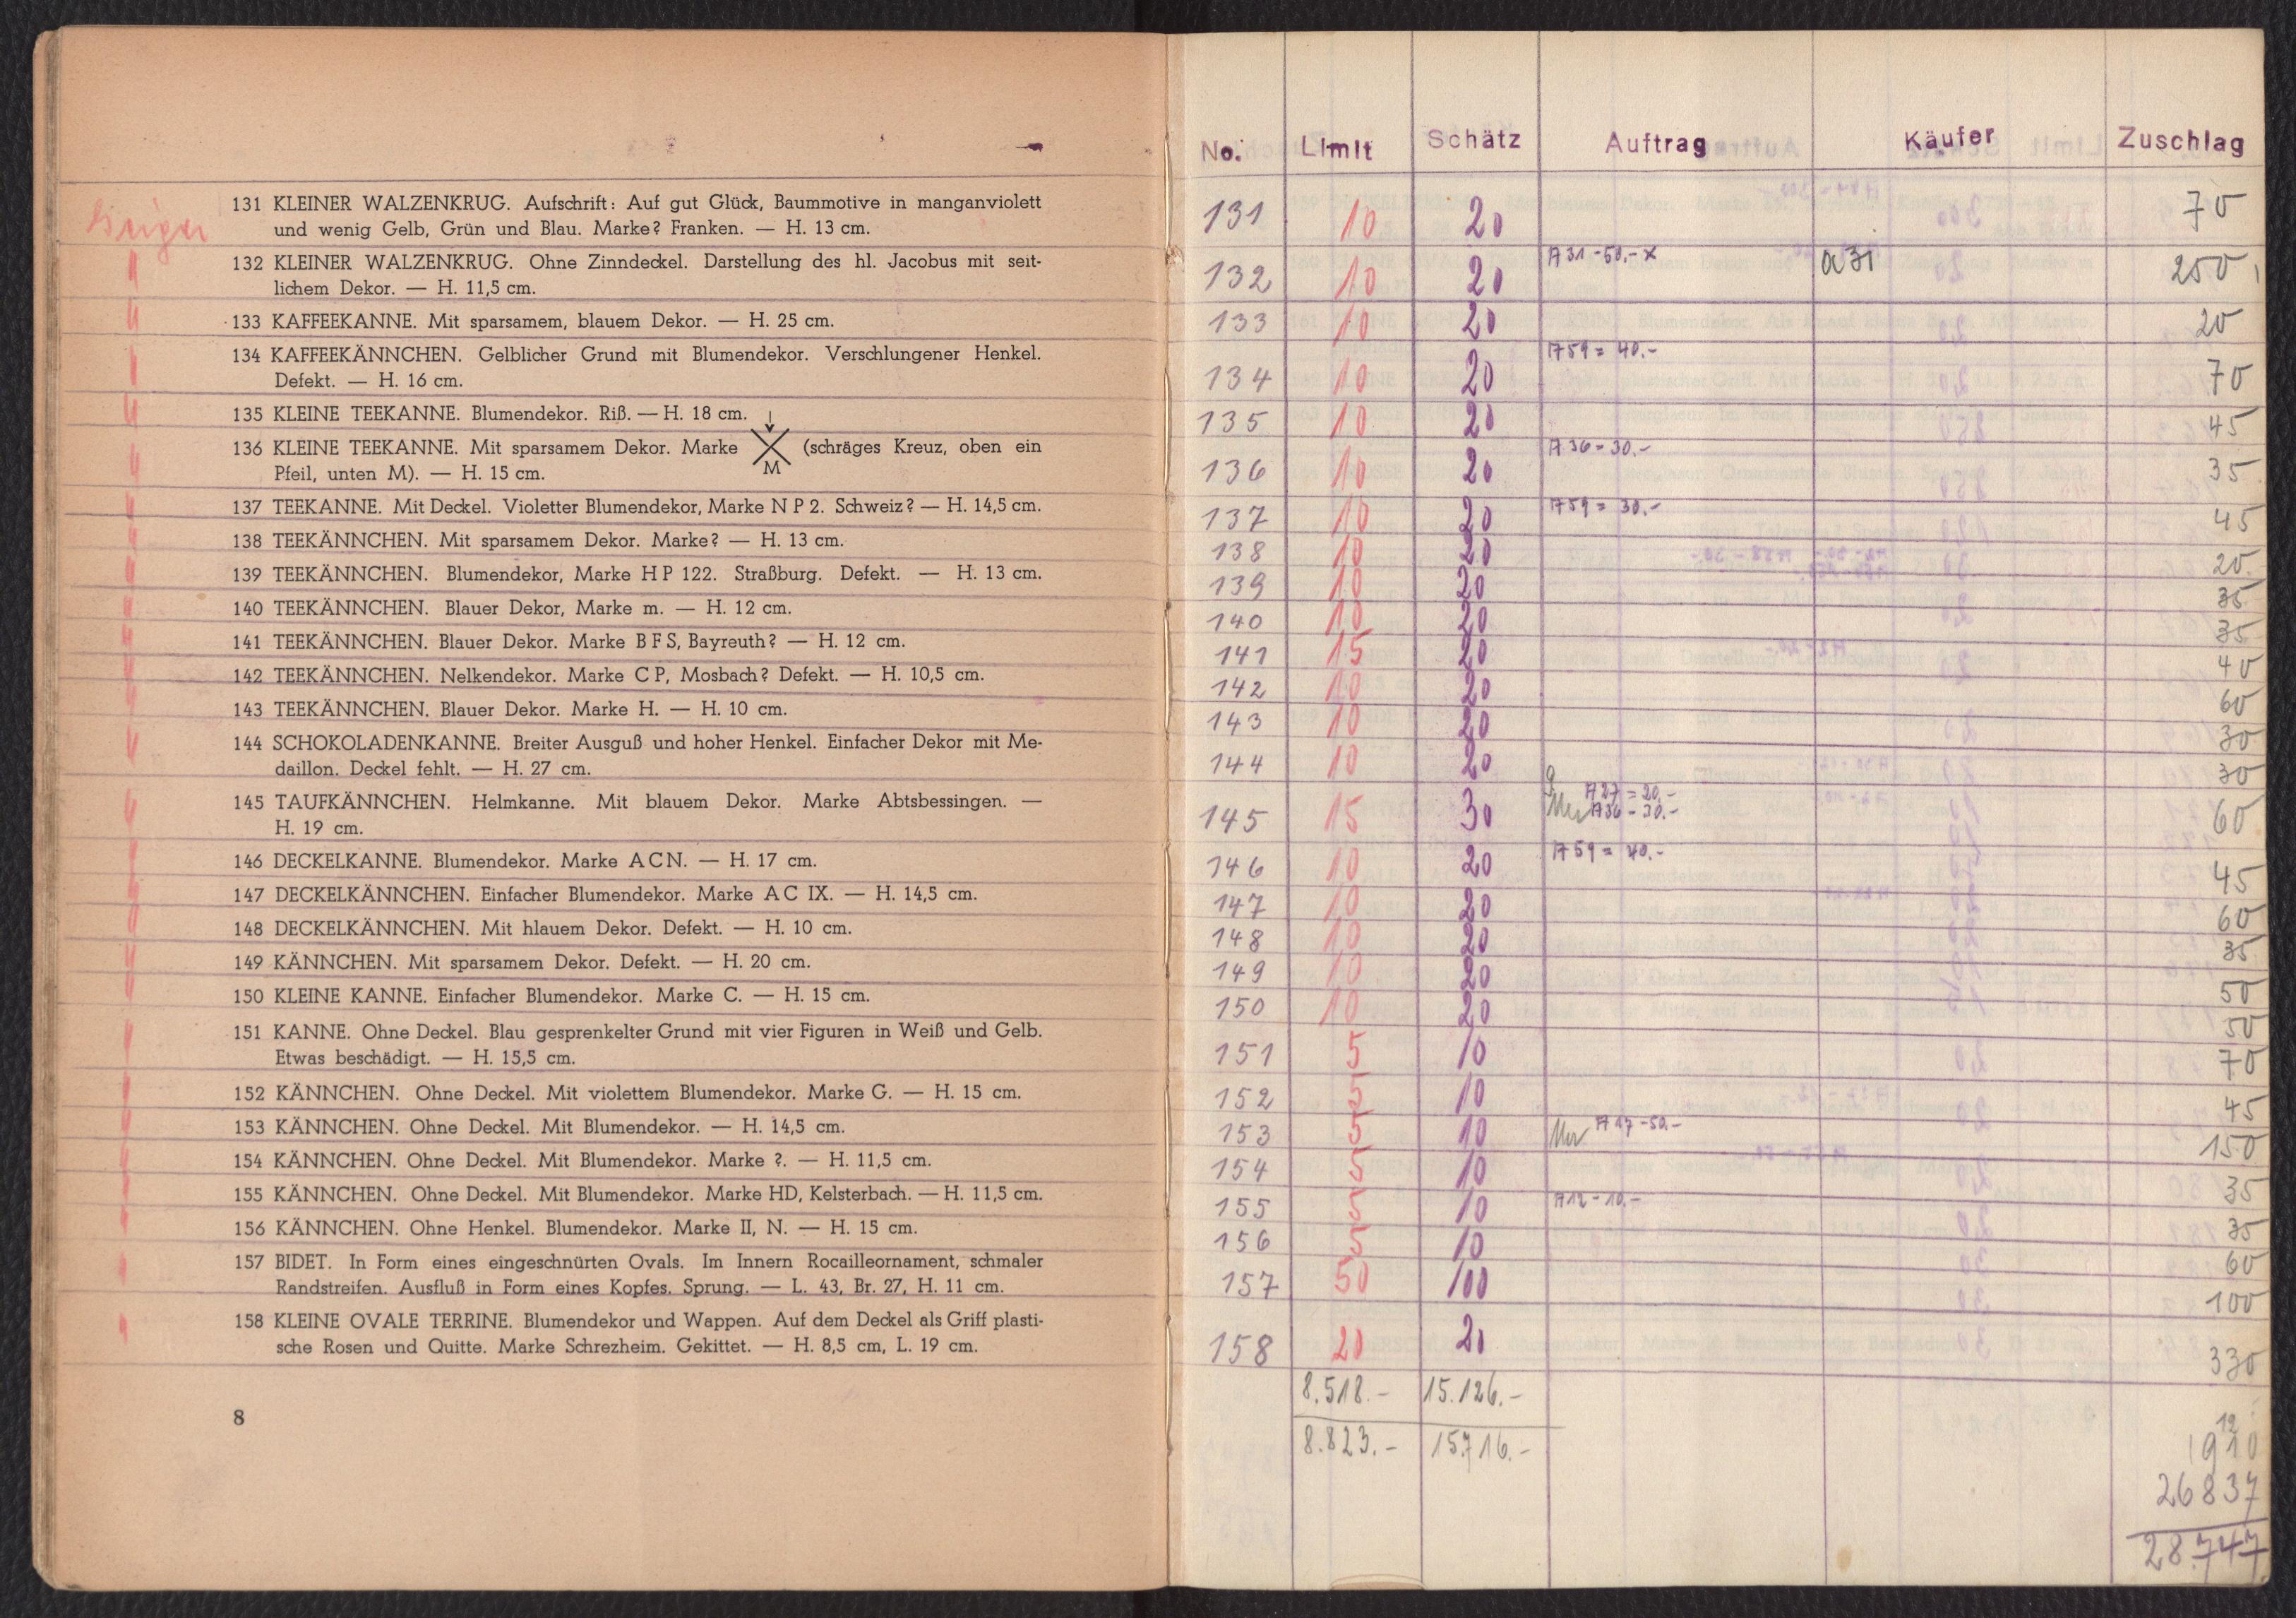 131 KLEINER WALZENKRUG. Aufschrift: Auf gut Glück, Baummotive in manganviolett
und wenig Gelb, Grün und Blau. Marke? Franken. — H. 13 cm.
132 KLEINER WALZENKRUG. Ohne Zinndeckel. Darstellung des hl. Jacobus mit seit-
lichem Dekor. — H. 11,5 cm.
133 KAFFEEKANNE. Mit sparsamem, blauem Dekor. — H. 25 cm.
134 KAFFEEKÄNNCHEN. Gelblicher Grund mit Blumendekor. Verschlungener Henkel.
Defekt. — H. 16 cm.
135 KLEINE TEEKANNE. Blumendekor. Riß. — H. 18 cm.
136 KLEINE TEEKANNE. Mit sparsamem Dekor. Marke M (schräges Kreuz, oben ein
Pfeil, unten M). — H. 15 cm.
137 TEEKANNE. Mit Deckel. Violetter Blumendekor, Marke N P 2. Schweiz? — H. 14,5 cm.
138 TEEKÄNNCHEN. Mit sparsamem Dekor. Marke? — H. 13 cm.
139 TEEKÄNNCHEN. Blumendekor, Marke H P 122. Straßburg. Defekt. — H. 13 cm.
140 TEEKÄNNCHEN. Blauer Dekor, Marke m. — H. 12 cm.
141 TEEKÄNNCHEN. Blauer Dekor. Marke B F S, Bayreuth? — H. 12 cm.
142 TEEKÄNNCHEN. Nelkendekor. Marke C P, Mosbach? Defekt. — H. 10,5 cm.
143 TEEKÄNNCHEN. Blauer Dekor. Marke H. — H. 10 cm.
144 SCHOKOLADENKANNE. Breiter Ausguß und hoher Henkel. Einfacher Dekor mit Me-
daillon. Deckel fehlt. — H. 27 cm.
145 TAUFKÄNNCHEN. Helmkanne. Mit blauem Dekor. Marke Abtsbessingen. —
H. 19 cm.
146 DECKELKANNE. Blumendekor. Marke A C N. — H. 17 cm.
147 DECKELKÄNNCHEN. Einfacher Blumendekor. Marke A C IX. — H. 14,5 cm.
148 DECKELKÄNNCHEN. Mit hlauem Dekor. Defekt. — H. 10 cm.
149 KÄNNCHEN. Mit sparsamem Dekor. Defekt. — H. 20 cm.
150 KLEINE KANNE. Einfacher Blumendekor. Marke C. — H. 15 cm.
151 KANNE. Ohne Deckel. Blau gesprenkelter Grund mit vier Figuren in Weiß und Gelb.
Etwas beschädigt. — H. 15,5 cm.
152 KÄNNCHEN. Ohne Deckel. Mit violettem Blumendekor. Marke G. — H. 15 cm.
153 KÄNNCHEN. Ohne Deckel. Mit Blumendekor. — H. 14,5 cm.
154 KÄNNCHEN. Ohne Deckel. Mit Blumendekor. Marke ?. — H. 11,5 cm.
155 KÄNNCHEN. Ohne Deckel. Mit Blumendekor. Marke HD, Kelsterbach. — H. 11,5 cm.
156 KÄNNCHEN. Ohne Henkel. Blumendekor. Marke II, N. — H. 15 cm.
157 BIDET. In Form eines eingeschnürten Ovals. Im Innern Rocailleornament, schmaler
Randstreifen. Ausfluß in Form eines Kopfes. Sprung. — L. 43, Br. 27, H. 11 cm.
158 KLEINE OVALE TERRINE. Blumendekor und Wappen. Auf dem Deckel als Griff plasti-
sche Rosen und Quitte. Marke Schrezheim. Gekittet. — H. 8,5 cm, L. 19 cm.
8
No. Limit Schätz Auftrag Käufer Zuschlag
131 10 20 70
132 10 20 A31-50.-x a31 250
133 10 20 20
134 10 20 A59=40.- 70
135 10 20 45
136 10 20 A36-30.- 35
137 10 20 A59=30.- 45
138 10 20 20
139 10 20 35
140 10 20 35
141 15 20 40
142 10 20 60
143 10 20 30
144 10 20 30
145 15 30 A27=20.- A36-30.- 60
146 10 20 A59=40.- 45
147 10 20 60
148 10 20 35
149 10 20 50
150 10 20 50
151 5 10 70
152 5 10 45
153 5 10 A17-50.- 150
154 5 10 35
155 5 10 A12-10.- 35
156 5 10 60
157 50 100 100
158 20 20 330
8.518.- 15.126.-
8.823.- 15.716.-
1910
26837
28.747